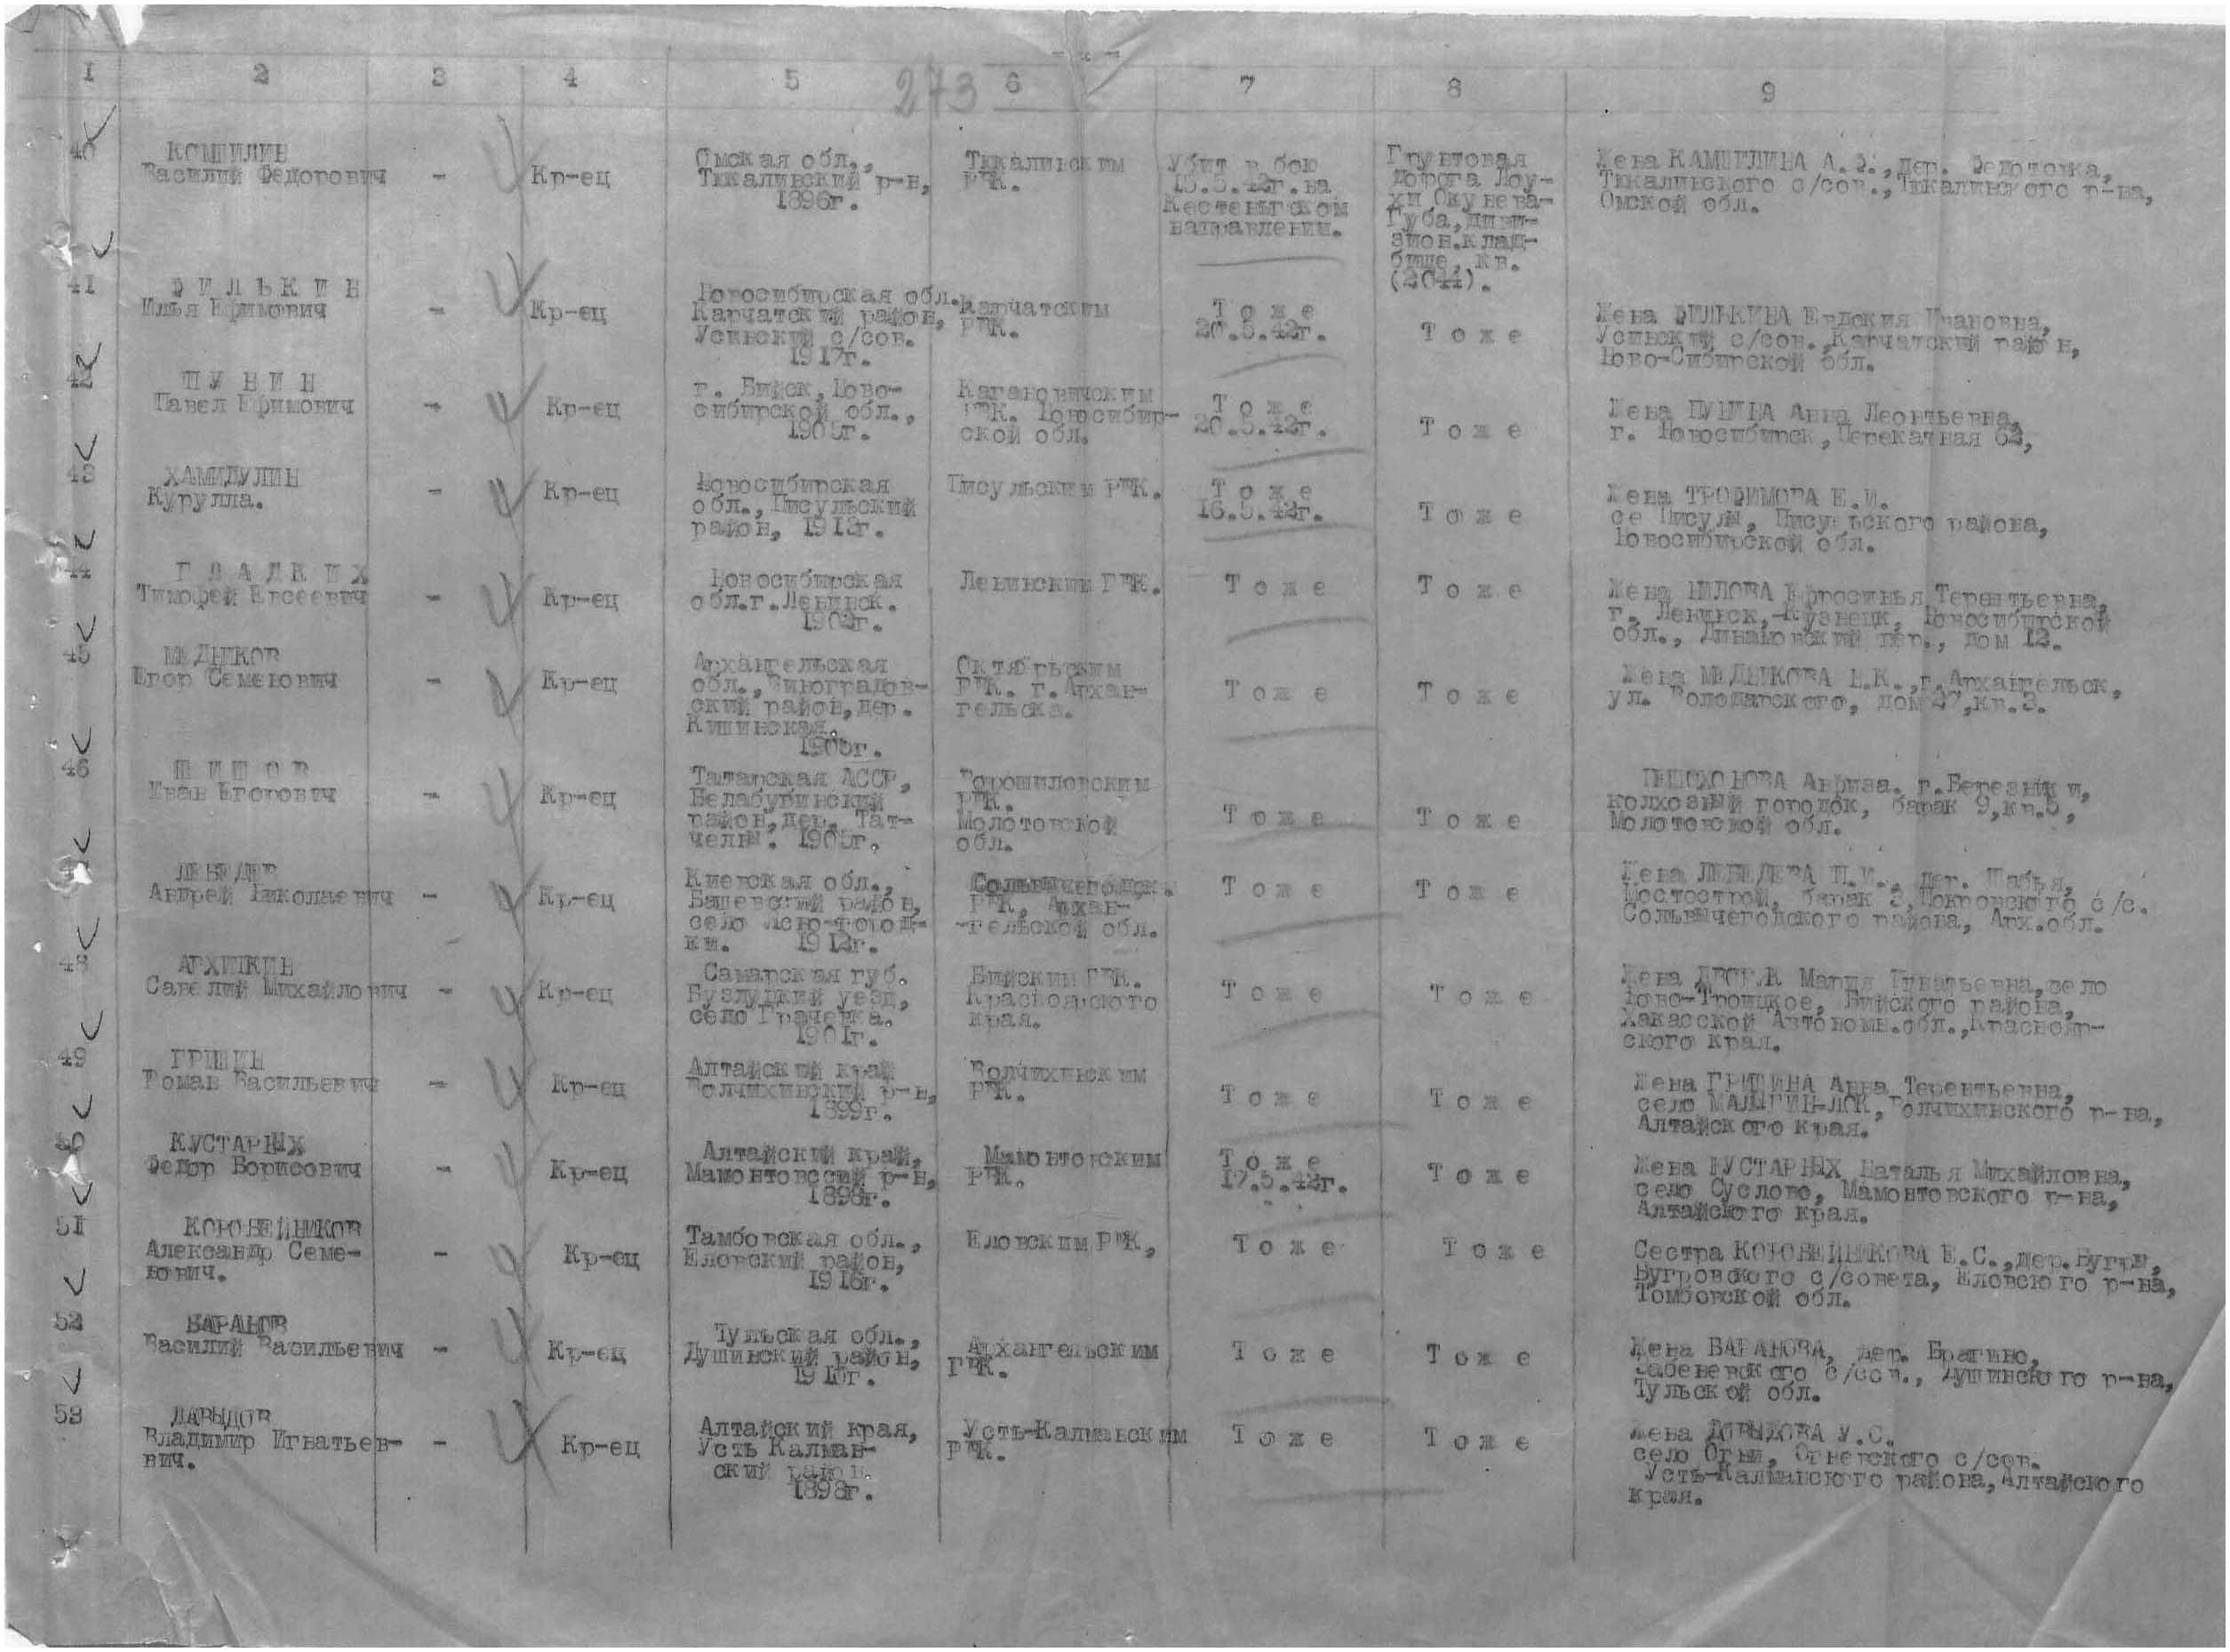 1 2 3 4 5 6 7 8 9
273
40
КОМШИЛИН
Василий Федорович
-
Кр-ец
Омская обл.,
Тюкалинский р-н,
1896г.
Тюкалинским
РВК.
Убит в бою
15.5.42г. на
Кестеньгском
направлении.
Грунтовая
дорога Лоу-
хи Окунева-
Губа, диви-
зион.клад-
бище, кв.
(2644).
Жена КАМШИЛИНА А.Ф., дер. Федотовка,
Тюкалинского с/сов., Тюкалинского р-на,
Омской обл.
41
ФИЛЬКИН
Илья Ефимович
-
Кр-ец
Новосибирская обл.
Каргатский район,
Усинский с/сов.
1917г.
Каргатским
РВК.
Тоже
20.5.42г.
Тоже
Жена ФИЛЬКИНА Евдокия Ивановна,
Усинский с/сов., Каргатский район,
Ново-Сибирской обл.
42
ПУНИН
Павел Ефимович
-
Кр-ец
г. Бийск, Ново-
сибирской обл.,
1905г.
Кагановичским
РВК. Новосибир-
ской обл.
Тоже
20.5.42г.
Тоже
Жена ПУНИНА Анна Леонтьевна,
г. Новосибирск, Перекатная 62,
43
ХАМИДУЛИН
Курулла.
-
Кр-ец
Новосибирская
обл., Тисульский
район, 1913г.
Тисульским РВК.
Тоже
16.5.42г.
Тоже
Жена ТРОФИМОВА Е.И.
се Тисуль, Тисульского района,
Новосибирской обл.
44
ГЛАДКИХ
Тимофей Евсеевич
-
Кр-ец
Новосибирская
обл.г.Ленинск.
1902г.
Ленинским ГВК.
Тоже
Тоже
Жена НИЛОВА Ефросинья Терентьевна,
г. Ленинск,-Кузнецк, Новосибирской
обл., Динамовский пер., дом 12.
45
МЕДНИКОВ
Егор Семенович
-
Кр-ец
Архангельская
обл., Виноградов-
ский район, дер.
Кишинская.
1905г.
Октябрьским
РВК. г. Архан-
гельска.
Тоже
Тоже
Жена МЕДНИКОВА Е.К., г. Архангельск,
ул. Володарского, дом 27, кв.3.
46
ШИШОВ
Иван Егорович
-
Кр-ец
Татарская АССР,
Белабугинский
район, дер. Тат-
челны. 1905г.
Ворошиловским
РВК.
Молотовской
обл.
Тоже
Тоже
Анфиза. г.Березники,
колхозный городок, барак 9, кв.5,
Молотовской обл.
47
ЛЕБЕДЕВ
Андрей Николаевич
-
Кр-ец
Киевская обл.,
район,
село
ки. 1912г.
Сольвычегодск.
РВК, Архан-
-гельской обл.
Тоже
Тоже
Жена ЛЕБЕДЕВА П.И., дер. Шабья,
Мостострой, барак 2, Покровского с/с.
Сольвычегодского района, Арх.обл.
48
АРХИПКИН
Савелий Михайлович
-
Кр-ец
Самарская губ.
Бузлудкий уезд,
село Грачевка.
1901г.
Бийским РВК.
Красноярского
края.
Тоже
Тоже
Жена Мария Игнатьевна, село
Ново-Троицкое, Бийского района,
Хакасской Автономн.обл., Краснояр-
ского края.
49
ГРИШИН
Роман Васильевич
-
Кр-ец
Алтайский край
Волчихинский р-н,
1899г.
Волчихинским
РВК.
Тоже
Тоже
Жена ГРИШИНА Анна Терентьевна,
село МАЛЫГИН-ЛОК, Волчихинского р-на,
Алтайского края.
50
КУСТАРНЫХ
Федор Борисович
-
Кр-ец
Алтайский край,
Мамонтовсский р-н,
1898г.
Мамонтовским
РВК.
Тоже
17.5.42г.
Тоже
Жена КУСТАРНЫХ Наталья Михайловна,
село Суслово, Мамонтовского р-на,
Алтайского края.
51
КОРОВЕЙНИКОВ
Александр Семе-
нович.
-
Кр-ец
Тамбовская обл.,
Еловский район,
1916г.
Еловским РВК,
Тоже
Тоже
Сестра КОРОВЕЙНИКОВА Е.С., дер.Бугры,
Бугровского с/совета, Еловского р-на,
Томбовской обл.
52
БАРАНОВ
Василий Васильевич
-
Кр-ец
Тульская обл.,
Душинский район,
1915г.
Архангельским
ГВК.
Тоже
Тоже
Жена БАРАНОВА, дер. Брагино,
Бабеневского с/сов., Душинского р-на,
Тульской обл.
53
ДАВЫДОВ
Владимир Игнатьев-
вич.
-
Кр-ец
Алтайский края,
Усть Калман-
ский район.
1898г.
Усть-Калманским
РВК.
Тоже
Тоже
Жена ДОВЫДОВА У.С.
село Огни, Огневского с/сов.
Усть-Калманского района, Алтайского
края.